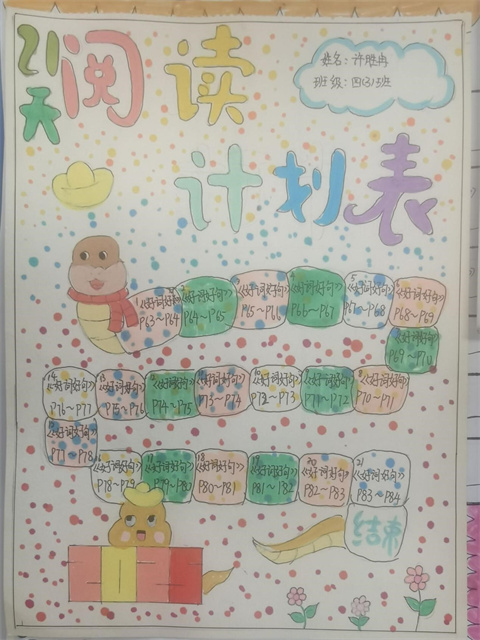 21天阅读
计划表
姓名：许胜冉
班级：四(3)班
1 《好词好句》 P63~P64
2 《好词好句》 P64~P65
3 《好词好句》 P65~P66
4 《好词好句》 P66~P67
5 《好词好句》 P67~P68
6 《好词好句》 P68~P69
7 《好词好句》 P69~P70
8 《好词好句》 P70~P71
9 《好词好句》 P71~P72
10 《好词好句》 P72~P73
《好词好句》 P73~P74
《好词好句》 P74~P75
13 《好词好句》 P75~P76
14 《好词好句》 P76~P77
15 《好词好句》 P77~P78
16 《好词好句》 P78~P79
17 《好词好句》 P79~P80
18 《好词好句》 P80~P81
19 《好词好句》 P81~P82
20 《好词好句》 P82~P83
21 《好词好句》 P83~P84
结束